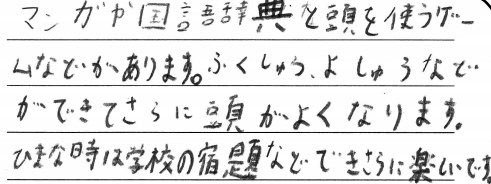 マンガや国語辞典と頭を使うゲー
ムなどがあります。ふくしゅう、よしゅうなど
ができてさらに頭がよくなります。
ひまな時は学校の宿題などできさらに楽しいです